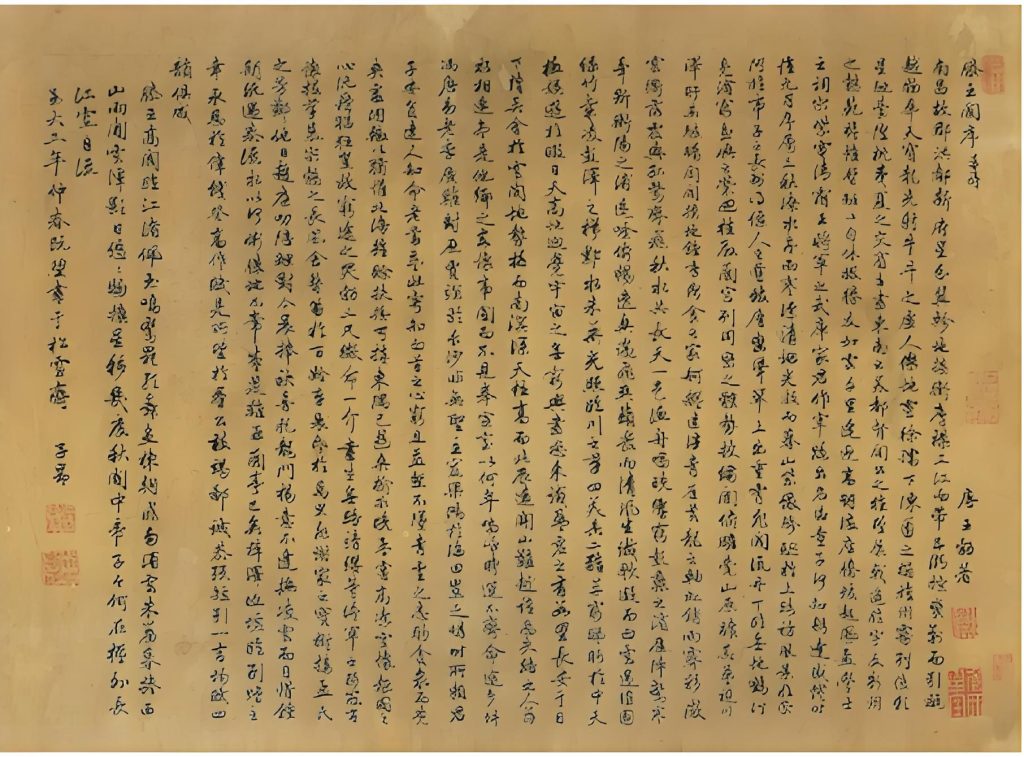 滕王閣序 并詩 唐王勃著
南昌故郡洪都新府星分翼軫地接衡廬襟三江而帶五湖控蠻荊而引甌
越物華天寶龍光射牛斗之虛人傑地靈徐孺下陳蕃之榻雄州霧列俊彩
星馳臺隍枕夷夏之交賓主盡東南之美都督閻公之雅望棨戟遙臨宇文新州
之懿範襜帷暫駐十旬休假勝友如雲千里逢迎高朋滿座騰蛟起鳳孟學士
之詞宗紫電清霜王將軍之武庫家君作宰路出名區童子何知躬逢勝餞時
惟九月序屬三秋潦水盡而寒潭清煙光凝而暮山紫儼驂騑於上路訪風景於崇
阿臨帝子之長洲得仙人之舊館層巒聳翠上出重霄飛閣流丹下臨無地鶴汀
鳧渚窮島嶼之縈迴桂殿蘭宮列岡巒之體勢披繡闥俯雕甍山原曠其盈視川
澤盱其駭矚閭閻撲地鐘鳴鼎食之家舸艦迷津青雀黃龍之軸虹銷雨霽彩徹
雲衢落霞與孤鶩齊飛秋水共長天一色漁舟唱晚響窮彭蠡之濱雁陣驚寒
聲斷衡陽之浦遙吟俯暢逸興遄飛爽籟發而清風生纖歌凝而白雲遏睢園
綠竹氣凌彭澤之樽鄴水朱華光照臨川之筆四美具二難并窮睇眄於中天
極娛遊於暇日天高地迥覺宇宙之無窮興盡悲來識盈虛之有數望長安于日
下指吳會於雲間地勢極而南溟深天柱高而北辰遠關山難越誰悲失路之人萍
水相逢盡是他鄉之客懷帝閽而不見奉宣室以何年嗚呼時運不齊命途多舛
馮唐易老李廣難封屈賈誼於長沙非無聖主竄梁鴻於海曲豈乏明時所賴君
子安貧達人知命老當益壯寧知白首之心窮且益堅不墜青雲之志酌貪泉而覺
爽處涸轍以猶懽北海雖賒扶搖可接東隅已逝桑榆非晚孟嘗高潔空懷報國之
心阮籍猖狂豈效窮途之哭勃三尺微命一介書生無路請纓等終軍之弱冠有
懷投筆慕宗愨之長風舍簪笏於百齡奉晨昏於萬里非謝家之寶樹接孟氏
之芳鄰他日趨庭叨陪鯉對今晨捧袂喜托龍門楊意不逢撫凌雲而自惜鍾
期既遇奏流水以何慚嗚呼勝地不常盛筵難再蘭亭已矣梓澤丘墟臨別贈言
幸承恩於偉餞登高作賦是所望於群公敢竭鄙誠恭疏短引一言均賦四
韻俱成
滕王高閣臨江渚佩玉鳴鸞罷歌舞畫棟朝飛南浦雲朱簾暮捲西
山雨閒雲潭影日悠〻物換星移幾度秋閣中帝子今何在檻外長
江空自流
至大二年仲春既望書于松雪齋 子昂